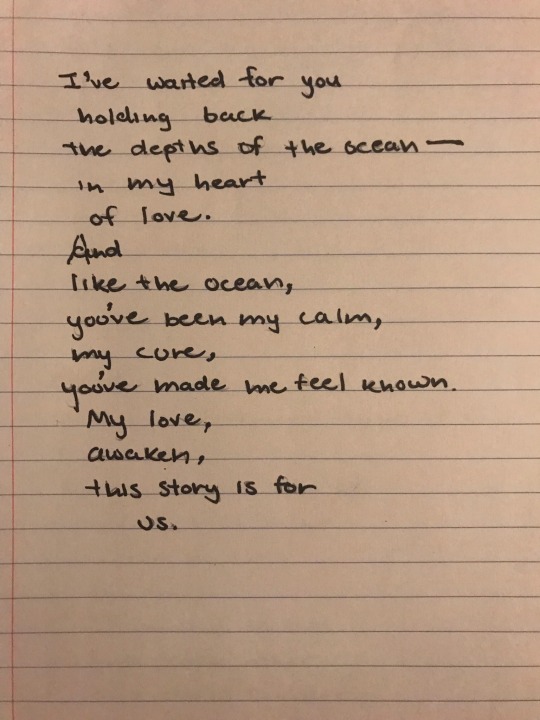 I've waited for you
holding back
the depths of the ocean—
in my heart
of love.
And
like the ocean,
you've been my calm,
my cure,
you've made me feel known.
My love,
awaken,
this story is for
us.